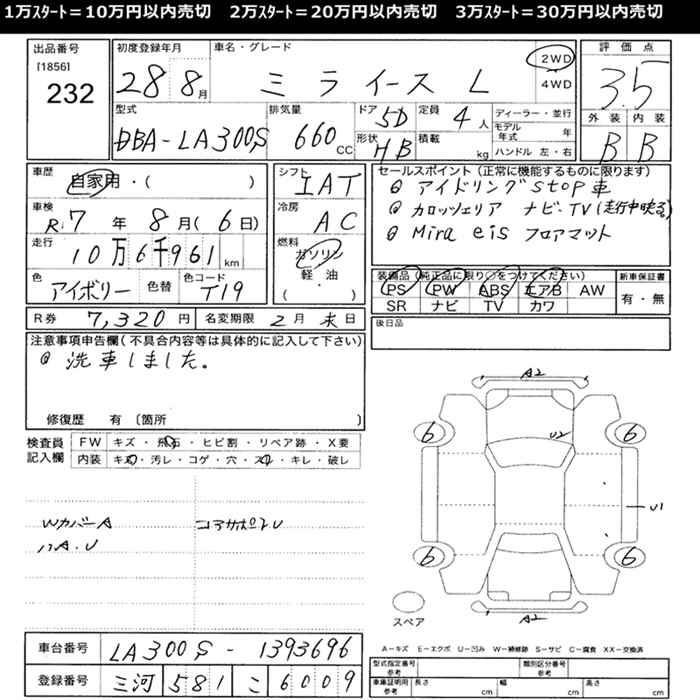 1万ｽﾀｰﾄ＝10万円以内売切 2万ｽﾀｰﾄ＝20万円以内売切 3万ｽﾀｰﾄ＝30万円以内売切
出品番号
[1856]
232
初度登録年月
28 8月
車名・グレード
ミライース L
2WD
4WD
評価点
3.5
外装 内装
B B
型式
DBA-LA300S
排気量
660 CC
ドア 5D
形状 HB
定員 4人
積載 kg
ディーラー・並行
モデル年式 年
ハンドル 左・右
車歴 自家用・( )
車検 R.7年 8月(6日)
走行 10万6千961km
色 アイボリー 色替
色コード T19
シフト IAT
冷房 AC
燃料 ガソリン
軽・油
( ・ )
セールスポイント(正常に機能するものに限ります)
◎ アイドリングSTOP車
◎ カロッツェリア ナビ・TV(走行中映る)
◎ Mira eis フロアマット
装備品(純正品に限り○をつけてください)
PS PW ABS エアB AW
SR ナビ TV カワ
新車保証書
有・無
R券 7,320円 名変期限 2月末日
後日品
注意事項申告欄(不具合内容等は具体的に記入して下さい)
◎ 洗車しました。
修復歴 有 〔箇所 〕
検査員記入欄
FW キズ・飛石・ヒビ割・リペア跡・X要
内装 キズ・汚レ・コゲ・穴・スレ・キレ・破レ
WカバーA
ハA.U
コアサポストU
A2
U2
6 6
U1
6 6
スペア
A2
A−キズ E−エクボ U−凹み W−補修跡 S−サビ C−腐食 XX−交換済
車台番号 LA300S-1393696
登録番号 三河 581 こ 6009
型式指定番号 類別区分番号
参考 参考
車庫証明用参考 長さ cm 幅 cm 高さ cm